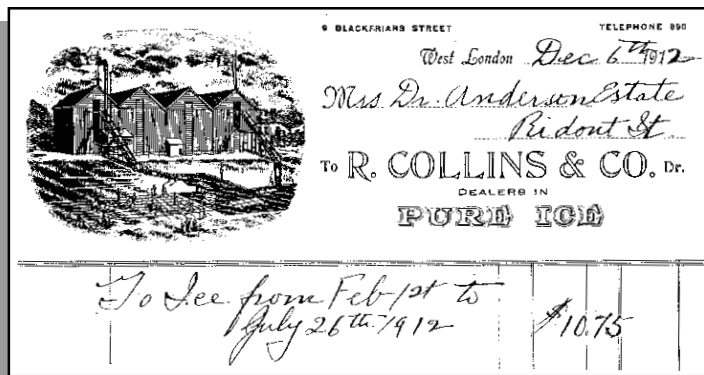 9 BLACKFRIARS STREET TELEPHONE 890
West London Dec 6th 1912
Mrs Dr. Anderson Estate
Ridout St.
To R. COLLINS & CO. Dr.
DEALERS IN
PURE ICE
To Ice from Feb 1st to
July 26th 1912 $10.75